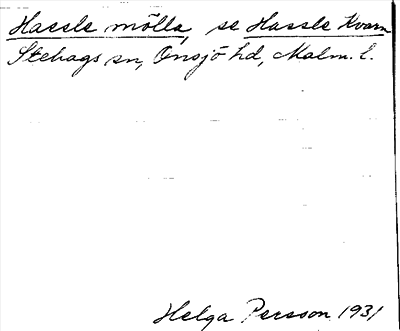 Hassle mölla, se Hassle Kvarn
Stehags sn, Onsjö hd, Malm. l.
Helga Persson 1931